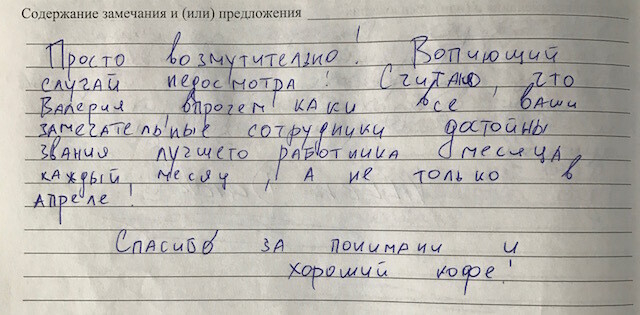 Содержание замечания и (или) предложения
Просто возмутительно! Вопиющий
случай недосмотра! Считаю, что
Валерия впрочем каки все ваши
замечательные сотрудники достойны
звания лучшего работника месяца
каждый месяц, а не только в
апреле!
Спасибо за понимани и
хороший кофе!